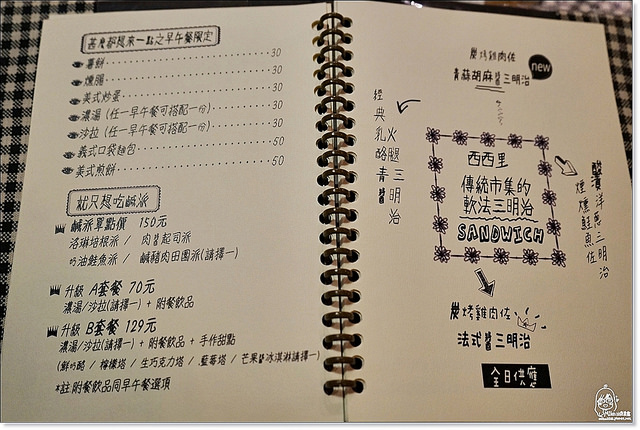 甚麼都想來一點之早午餐限定
薯餅 30
燻腸 30
美式炒蛋 30
濃湯(任一早午餐可搭配一份) 30
沙拉(任一早午餐可搭配一份) 30
義式口袋麵包 50
美式煎餅 50
就只想吃鹹派
鹹派單點價 150元
洛琳培根派 / 肉醬起司派
奶油鮭魚派 / 鹹豬肉田園派(請擇一)
升級 A套餐 70元
濃湯/沙拉(請擇一) + 附餐飲品
升級 B套餐 129元
濃湯/沙拉(請擇一) + 附餐飲品 + 手作甜點
(鮮奶酪 / 檸檬塔 / 生巧克力塔 / 藍莓塔 / 芒果醬冰淇淋請擇一)
*註附餐飲品同早午餐選項
炭烤雞肉佐
青蘇胡麻醬三明治
new
經典乳酪青醬
火腿三明治
西西里
傳統市集的
軟法三明治
SANDWICH
酸漬洋蔥三明治
煙燻鮭魚佐
炭烤雞肉佐
法式醬三明治
全日供應